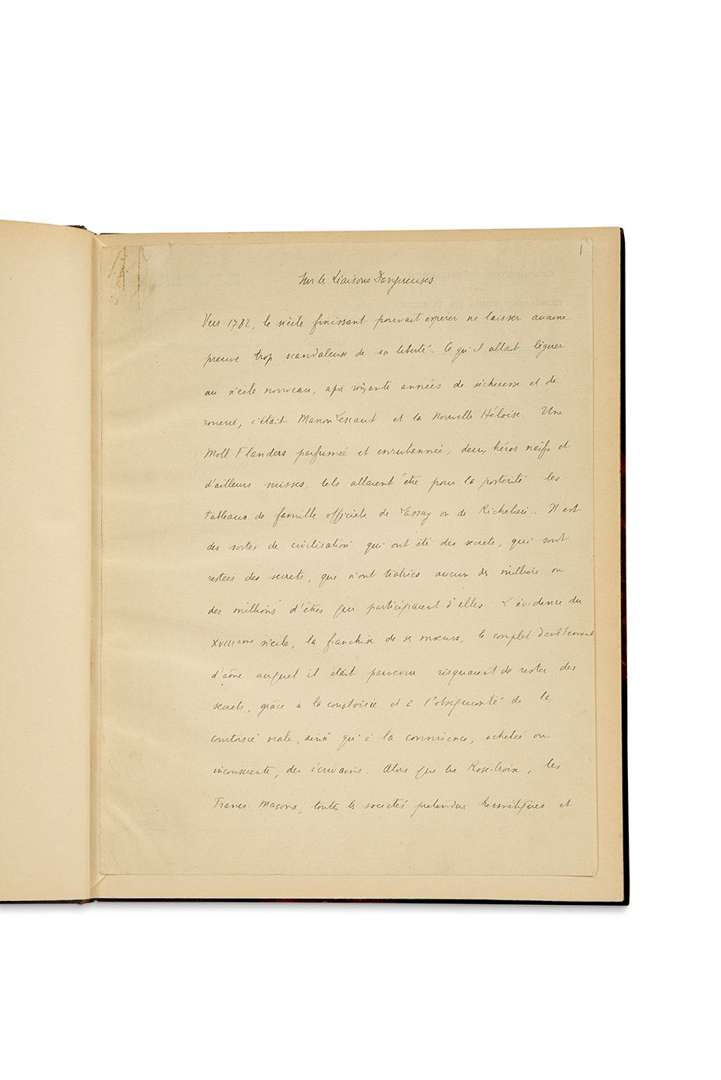 1
Sur les Liaisons Dangereuses
Vers 1782, le siècle finissant pouvait espérer ne laisser aucune
preuve trop scandaleuse de sa liberté. Ce qu'il allait léguer
au siècle nouveau, après soixante années de sécheresse et de
rouerie, c'était Manon Lescaut et la Nouvelle Héloïse. Une
Moll Flanders parfumée et enrubannée, deux héros naïfs et
d'ailleurs suisses, tels allaient être pour la postérité les
tableaux de famille officiels de Lassay ou de Richelieu. Il est
des sortes de civilisation qui ont été des secrets, qui sont
restées des secrets, que n'ont trahies aucun des milliers ou
des millions d'êtres qui participaient d'elles. L'évidence du
XVIIIème siècle, la franchise de ses mœurs, le complet dévêtement
d'âme auquel il était parvenu risquaient de rester des
secrets, grâce à la courtoisie et à l'obséquiosité de la
courtoisie orale, ainsi qu'à la connivence, achetée ou
inconsciente, des écrivains. Alors que les Rose-Croix, les
Francs Maçons, toutes les sociétés prétendues hermétiques et